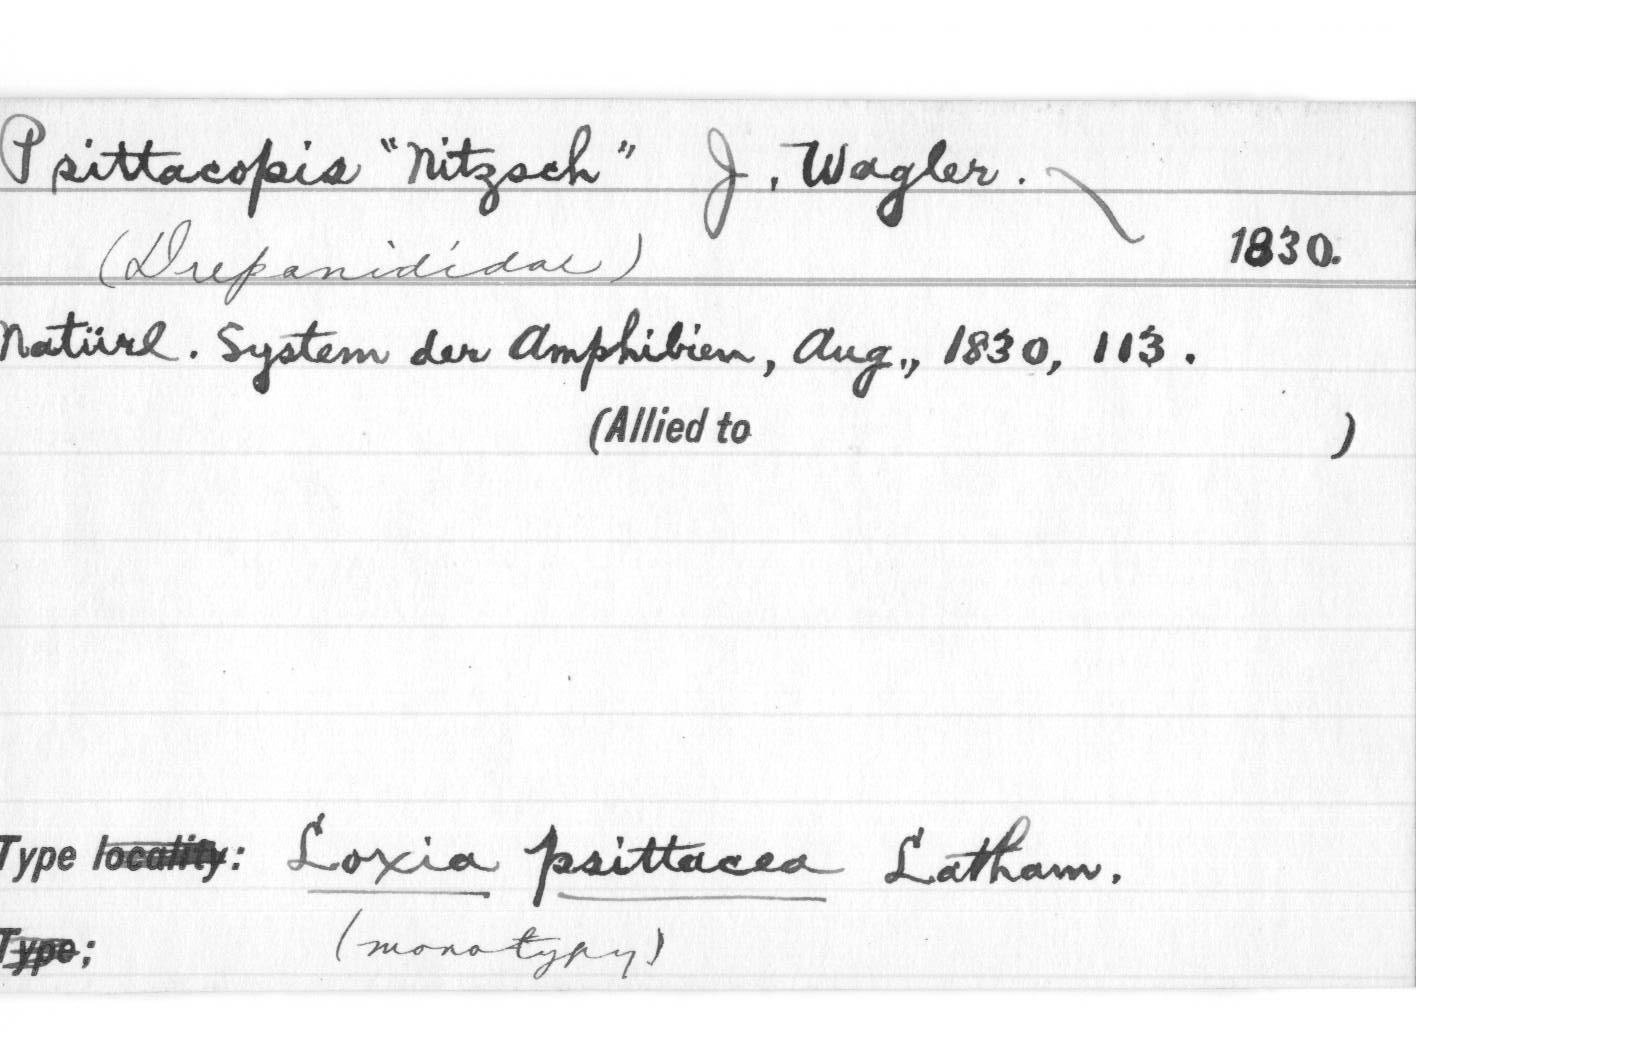 Psittacopis "Nitzsch" J. Wagler.
(Drepanididae)
1830.
Natürl. System der Amphibien, Aug., 1830, 113.
(Allied to )
Type locality: Loxia psittacea Latham.
Type; (monotypy)